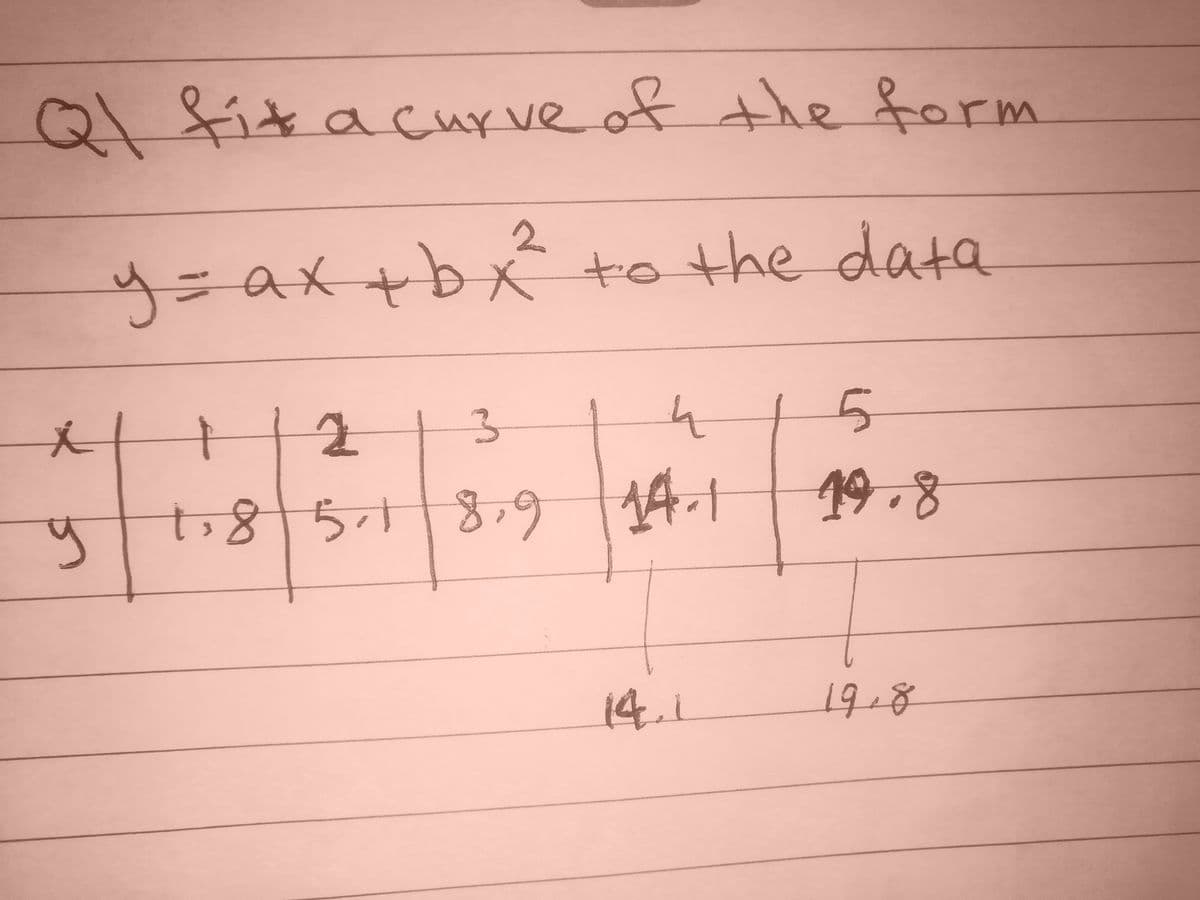 Q1 fit a curve of the form
y = ax + bx² to the data
x | 1 | 2 | 3 | 4 | 5
y | 1,8 | 5.1 | 8,9 | 14.1 | 19.8
14.1 19.8